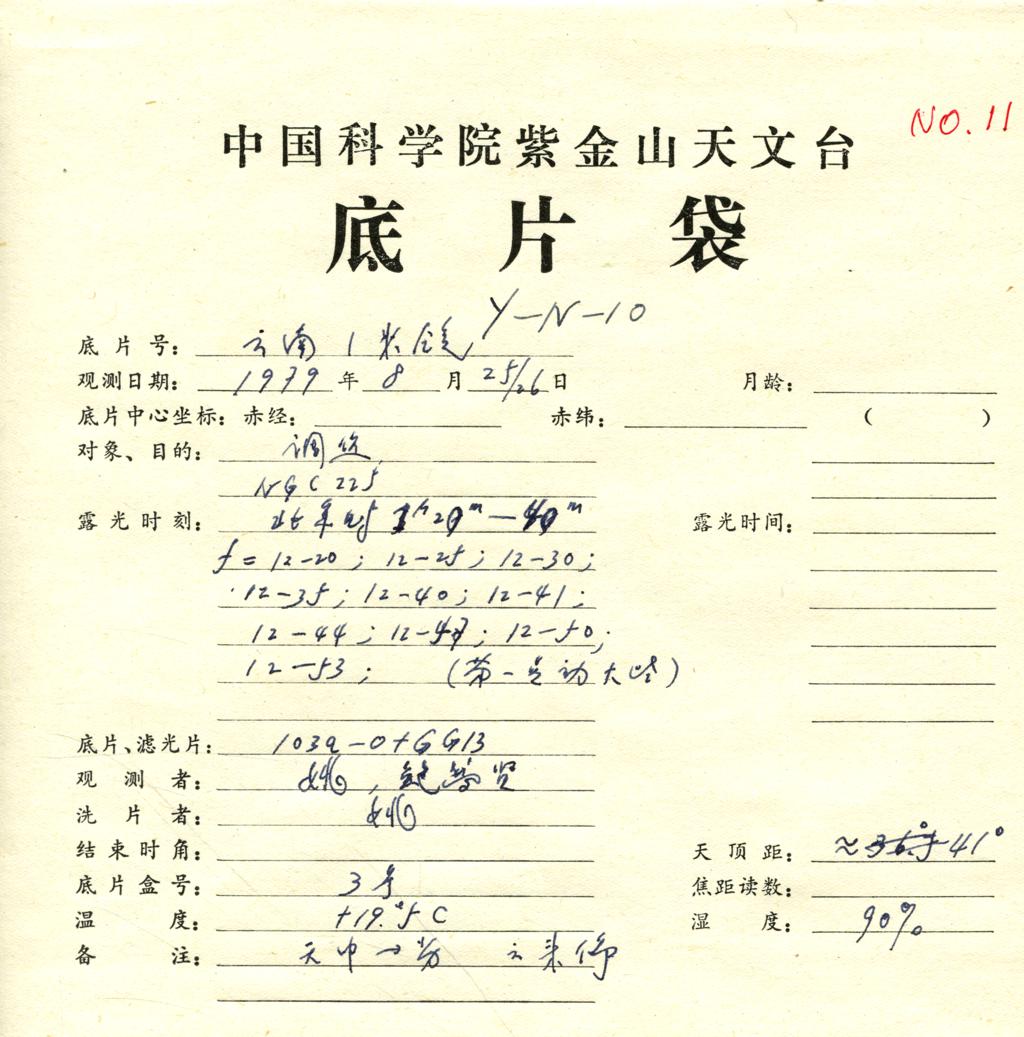 NO.11
中国科学院紫金山天文台
底片袋
Y-N-10
底片号：云南1米
观测日期：1979年8月25/26日 月龄：
底片中心坐标：赤经： 赤纬： （ ）
对象、目的：调焦
NGC 225
露光时刻：北京时 1ʰ20ᵐ—40ᵐ 露光时间：
f=12-20；12-25；12-30；
12-35；12-40；12-41；
12-44；12-47；12-50；
12-53；（第一星动大些）
底片、滤光片：103a-O+GG13
观测者：姚，鲍梦贤
洗片者：姚
结束时角： 天顶距：≈41°
底片盒号：3号 焦距读数：
温度：+19.°5C 湿度：90%
备注：天中→劣 云来停